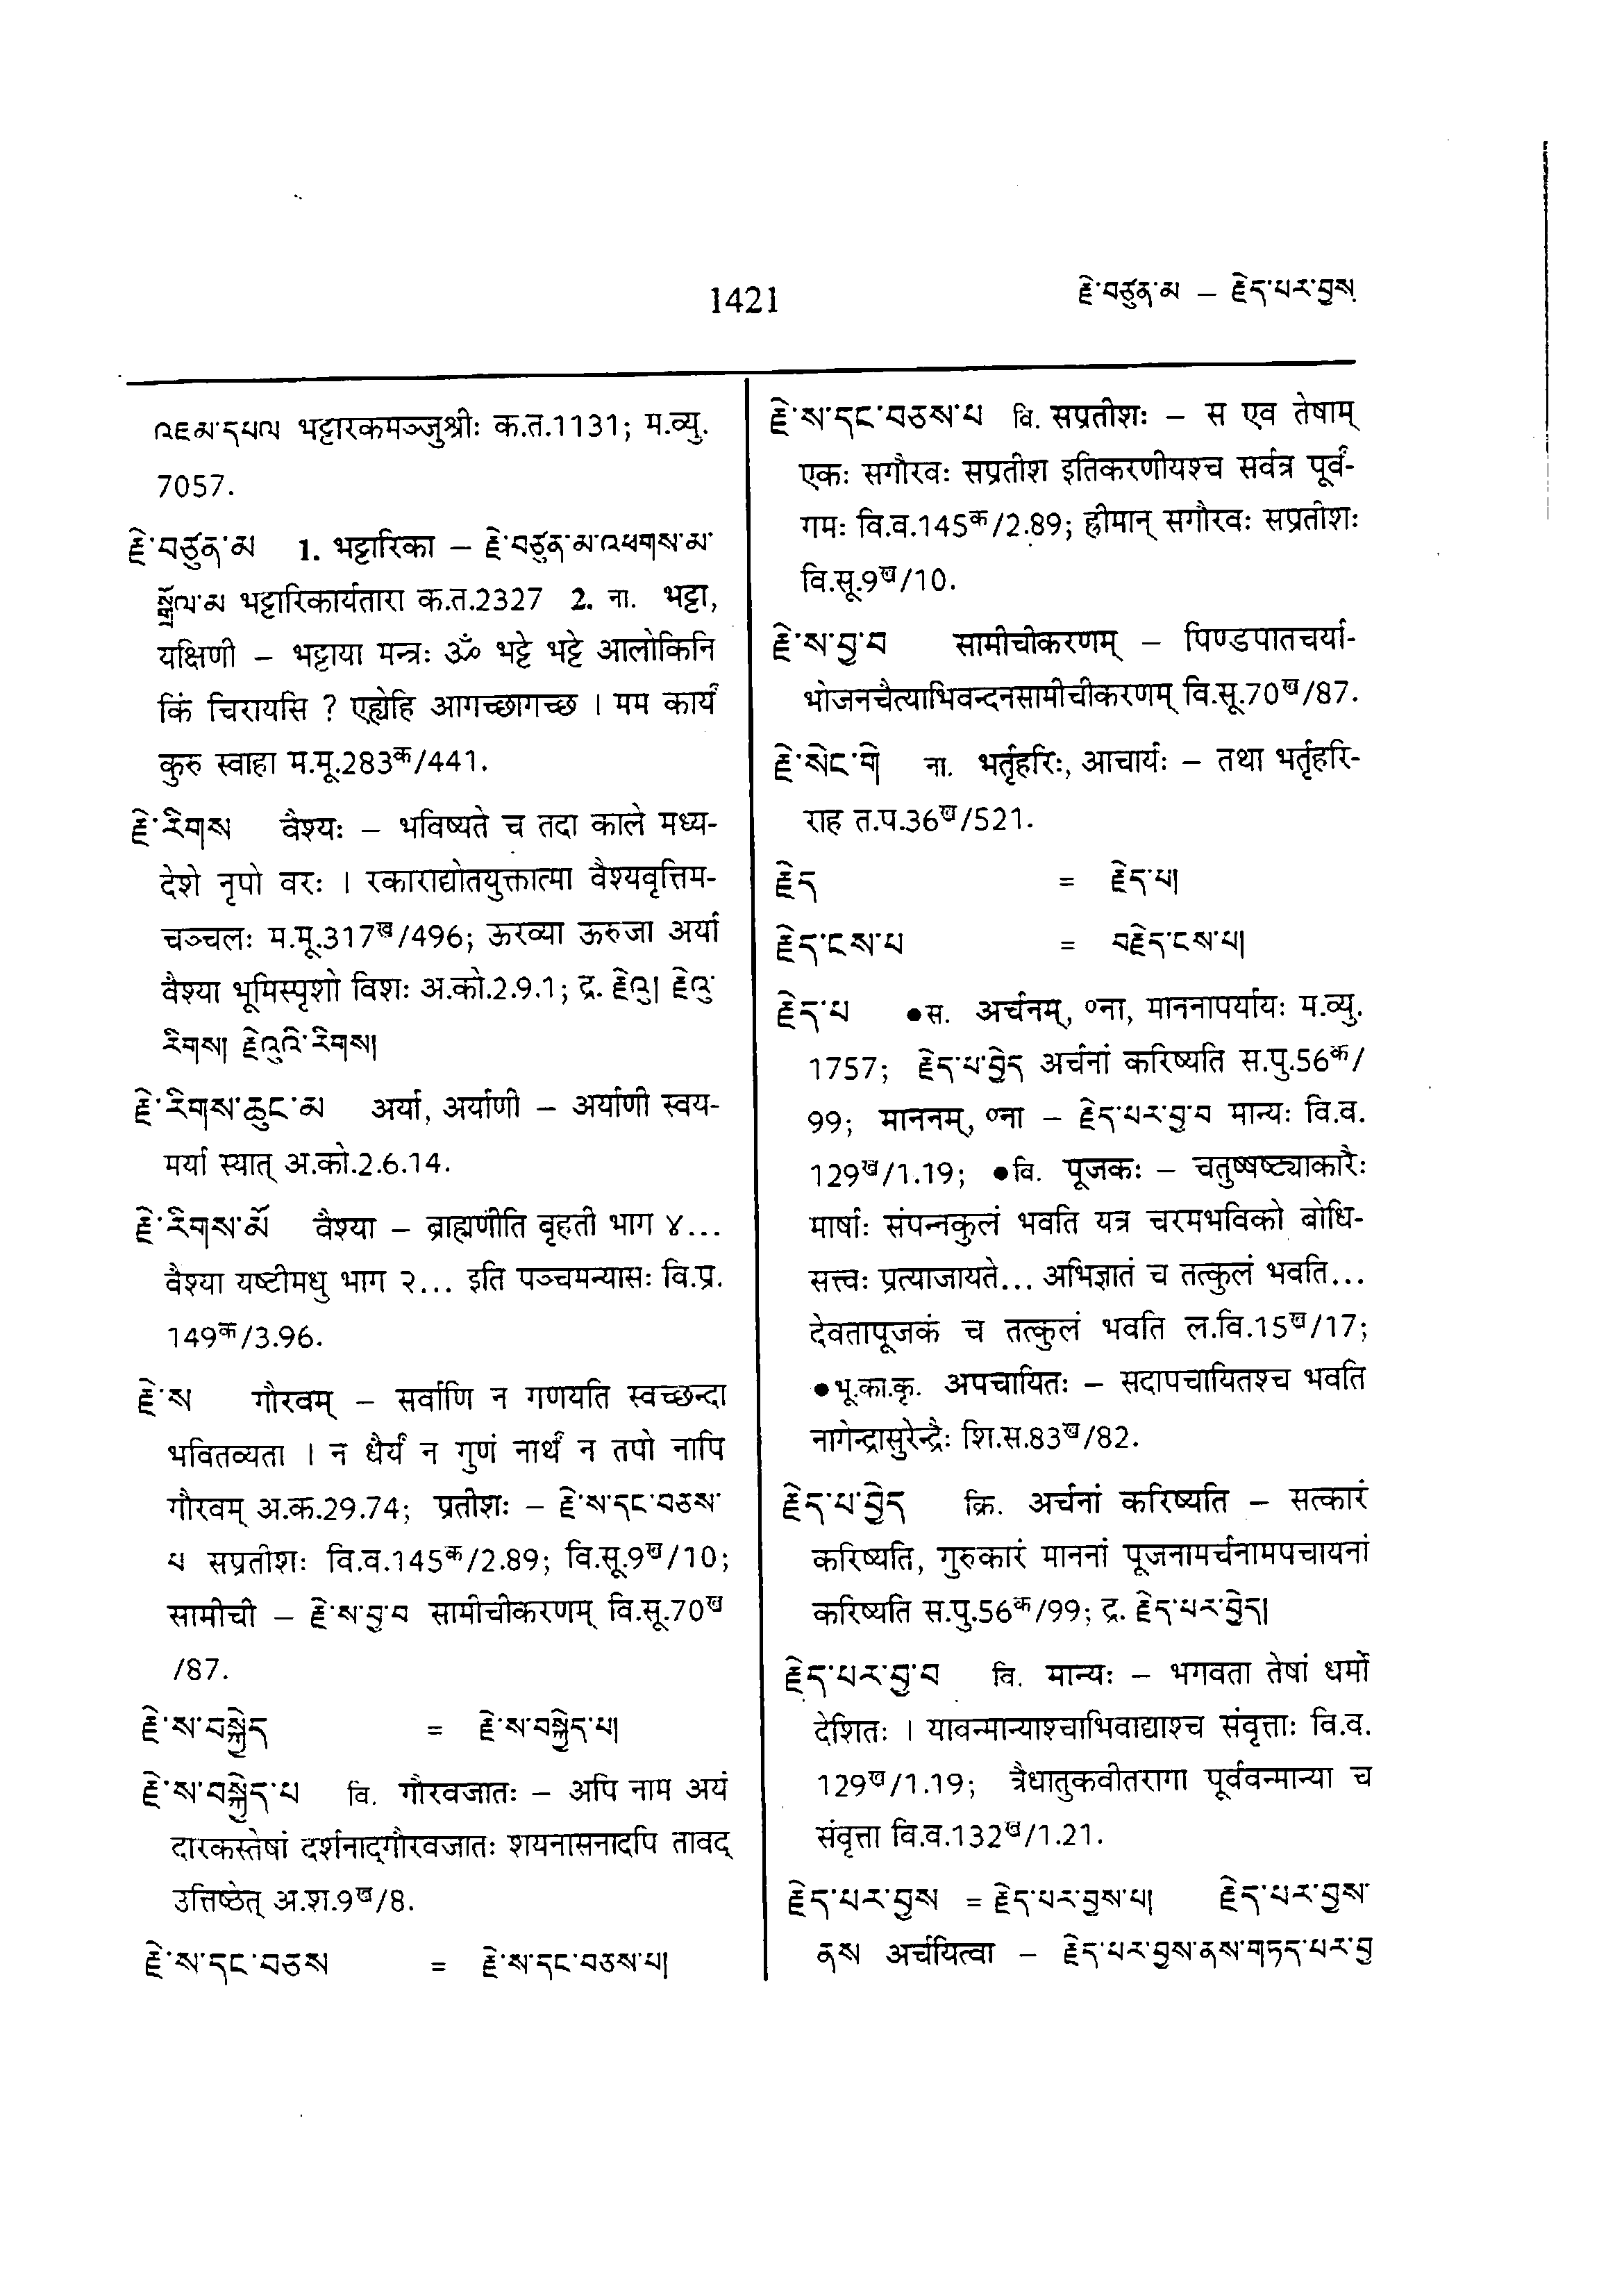 1421
རྗེ་བཙུན་མ – རྗེད་པར་བྱས
འཇམ་དཔལ भट्टारकमञ्जुश्रीः क.त.1131; म.व्यु.
7057.
རྗེ་བཙུན་མ 1. भट्टारिका – རྗེ་བཙུན་མ་འཕགས་མ་
སྒྲོལ་མ भट्टारिकार्यतारा क.त.2327 2. ना. भट्टा,
यक्षिणी – भट्टाया मन्त्रः ॐ भट्टे भट्टे आलोकिनि
किं चिरायसि ? एह्येहि आगच्छागच्छ । मम कार्यं
कुरु स्वाहा म.मू.283क/441.
རྗེ་རིགས वैश्यः – भविष्यते च तदा काले मध्य-
देशे नृपो वरः । रकाराद्योतयुक्तात्मा वैश्यवृत्तिम-
चञ्चलः म.मू.317ख/496; ऊरव्या ऊरुजा अर्या
वैश्या भूमिस्पृशो विशः अ.को.2.9.1; द्र. རྗེའུ། རྗེའུ་
རིགས། རྗེའུའི་རིགས།
རྗེ་རིགས་ཆུང་མ अर्या, अर्याणी – अर्याणी स्वय-
मर्या स्यात् अ.को.2.6.14.
རྗེ་རིགས་མོ वैश्या – ब्राह्मणीति बृहती भाग ४...
वैश्या यष्टीमधु भाग २... इति पञ्चमन्यासः वि.प्र.
149क/3.96.
རྗེ་ས गौरवम् – सर्वाणि न गणयति स्वच्छन्दा
भवितव्यता । न धैर्यं न गुणं नार्थं न तपो नापि
गौरवम् अ.क.29.74; प्रतीशः – རྗེ་ས་དང་བཅས་
པ सप्रतीशः वि.व.145क/2.89; वि.सू.9ख/10;
सामीची – རྗེ་ས་བྱ་བ सामीचीकरणम् वि.सू.70ख
/87.
རྗེ་ས་བསྐྱེད = རྗེ་ས་བསྐྱེད་པ།
རྗེ་ས་བསྐྱེད་པ वि. गौरवजातः – अपि नाम अयं
दारकस्तेषां दर्शनाद्गौरवजातः शयनासनादपि तावद्
उत्तिष्ठेत् अ.श.9ख/8.
རྗེ་ས་དང་བཅས = རྗེ་ས་དང་བཅས་པ།
རྗེ་ས་དང་བཅས་པ वि. सप्रतीशः – स एव तेषाम्
एकः सगौरवः सप्रतीश इतिकरणीयश्च सर्वत्र पूर्वं-
गमः वि.व.145क/2.89; ह्रीमान् सगौरवः सप्रतीशः
वि.सू.9ख/10.
རྗེ་ས་བྱ་བ सामीचीकरणम् – पिण्डपातचर्या-
भोजनचैत्याभिवन्दनसामीचीकरणम् वि.सू.70ख/87.
རྗེ་སེང་གེ ना. भर्तृहरिः, आचार्यः – तथा भर्तृहरि-
राह त.प.36ख/521.
རྗེད = རྗེད་པ།
རྗེད་ངས་པ = བརྗེད་ངས་པ།
རྗེད་པ ●स. अर्चनम्, ०ना, माननापर्यायः म.व्यु.
1757; རྗེད་པ་བྱེད अर्चनां करिष्यति स.पु.56क/
99; माननम्, ०ना – རྗེད་པར་བྱ་བ मान्यः वि.व.
129ख/1.19; ●वि. पूजकः – चतुष्षष्ट्याकारैः
मार्षाः संपन्नकुलं भवति यत्र चरमभविको बोधि-
सत्त्वः प्रत्याजायते... अभिज्ञातं च तत्कुलं भवति...
देवतापूजकं च तत्कुलं भवति ल.वि.15ख/17;
●भू.का.कृ. अपचायितः – सदापचायितश्च भवति
नागेन्द्रासुरेन्द्रैः शि.स.83ख/82.
རྗེད་པ་བྱེད क्रि. अर्चनां करिष्यति – सत्कारं
करिष्यति, गुरुकारं माननां पूजनामर्चनामपचायनां
करिष्यति स.पु.56क/99; द्र. རྗེད་པར་བྱེད།
རྗེད་པར་བྱ་བ वि. मान्यः – भगवता तेषां धर्मो
देशितः । यावन्मान्याश्चाभिवाद्याश्च संवृत्ताः वि.व.
129ख/1.19; त्रैधातुकवीतरागा पूर्ववन्मान्या च
संवृत्ता वि.व.132ख/1.21.
རྗེད་པར་བྱས = རྗེད་པར་བྱས་པ། རྗེད་པར་བྱས་
ནས अर्चयित्वा – རྗེད་པར་བྱས་ནས་གཏད་པར་བྱ